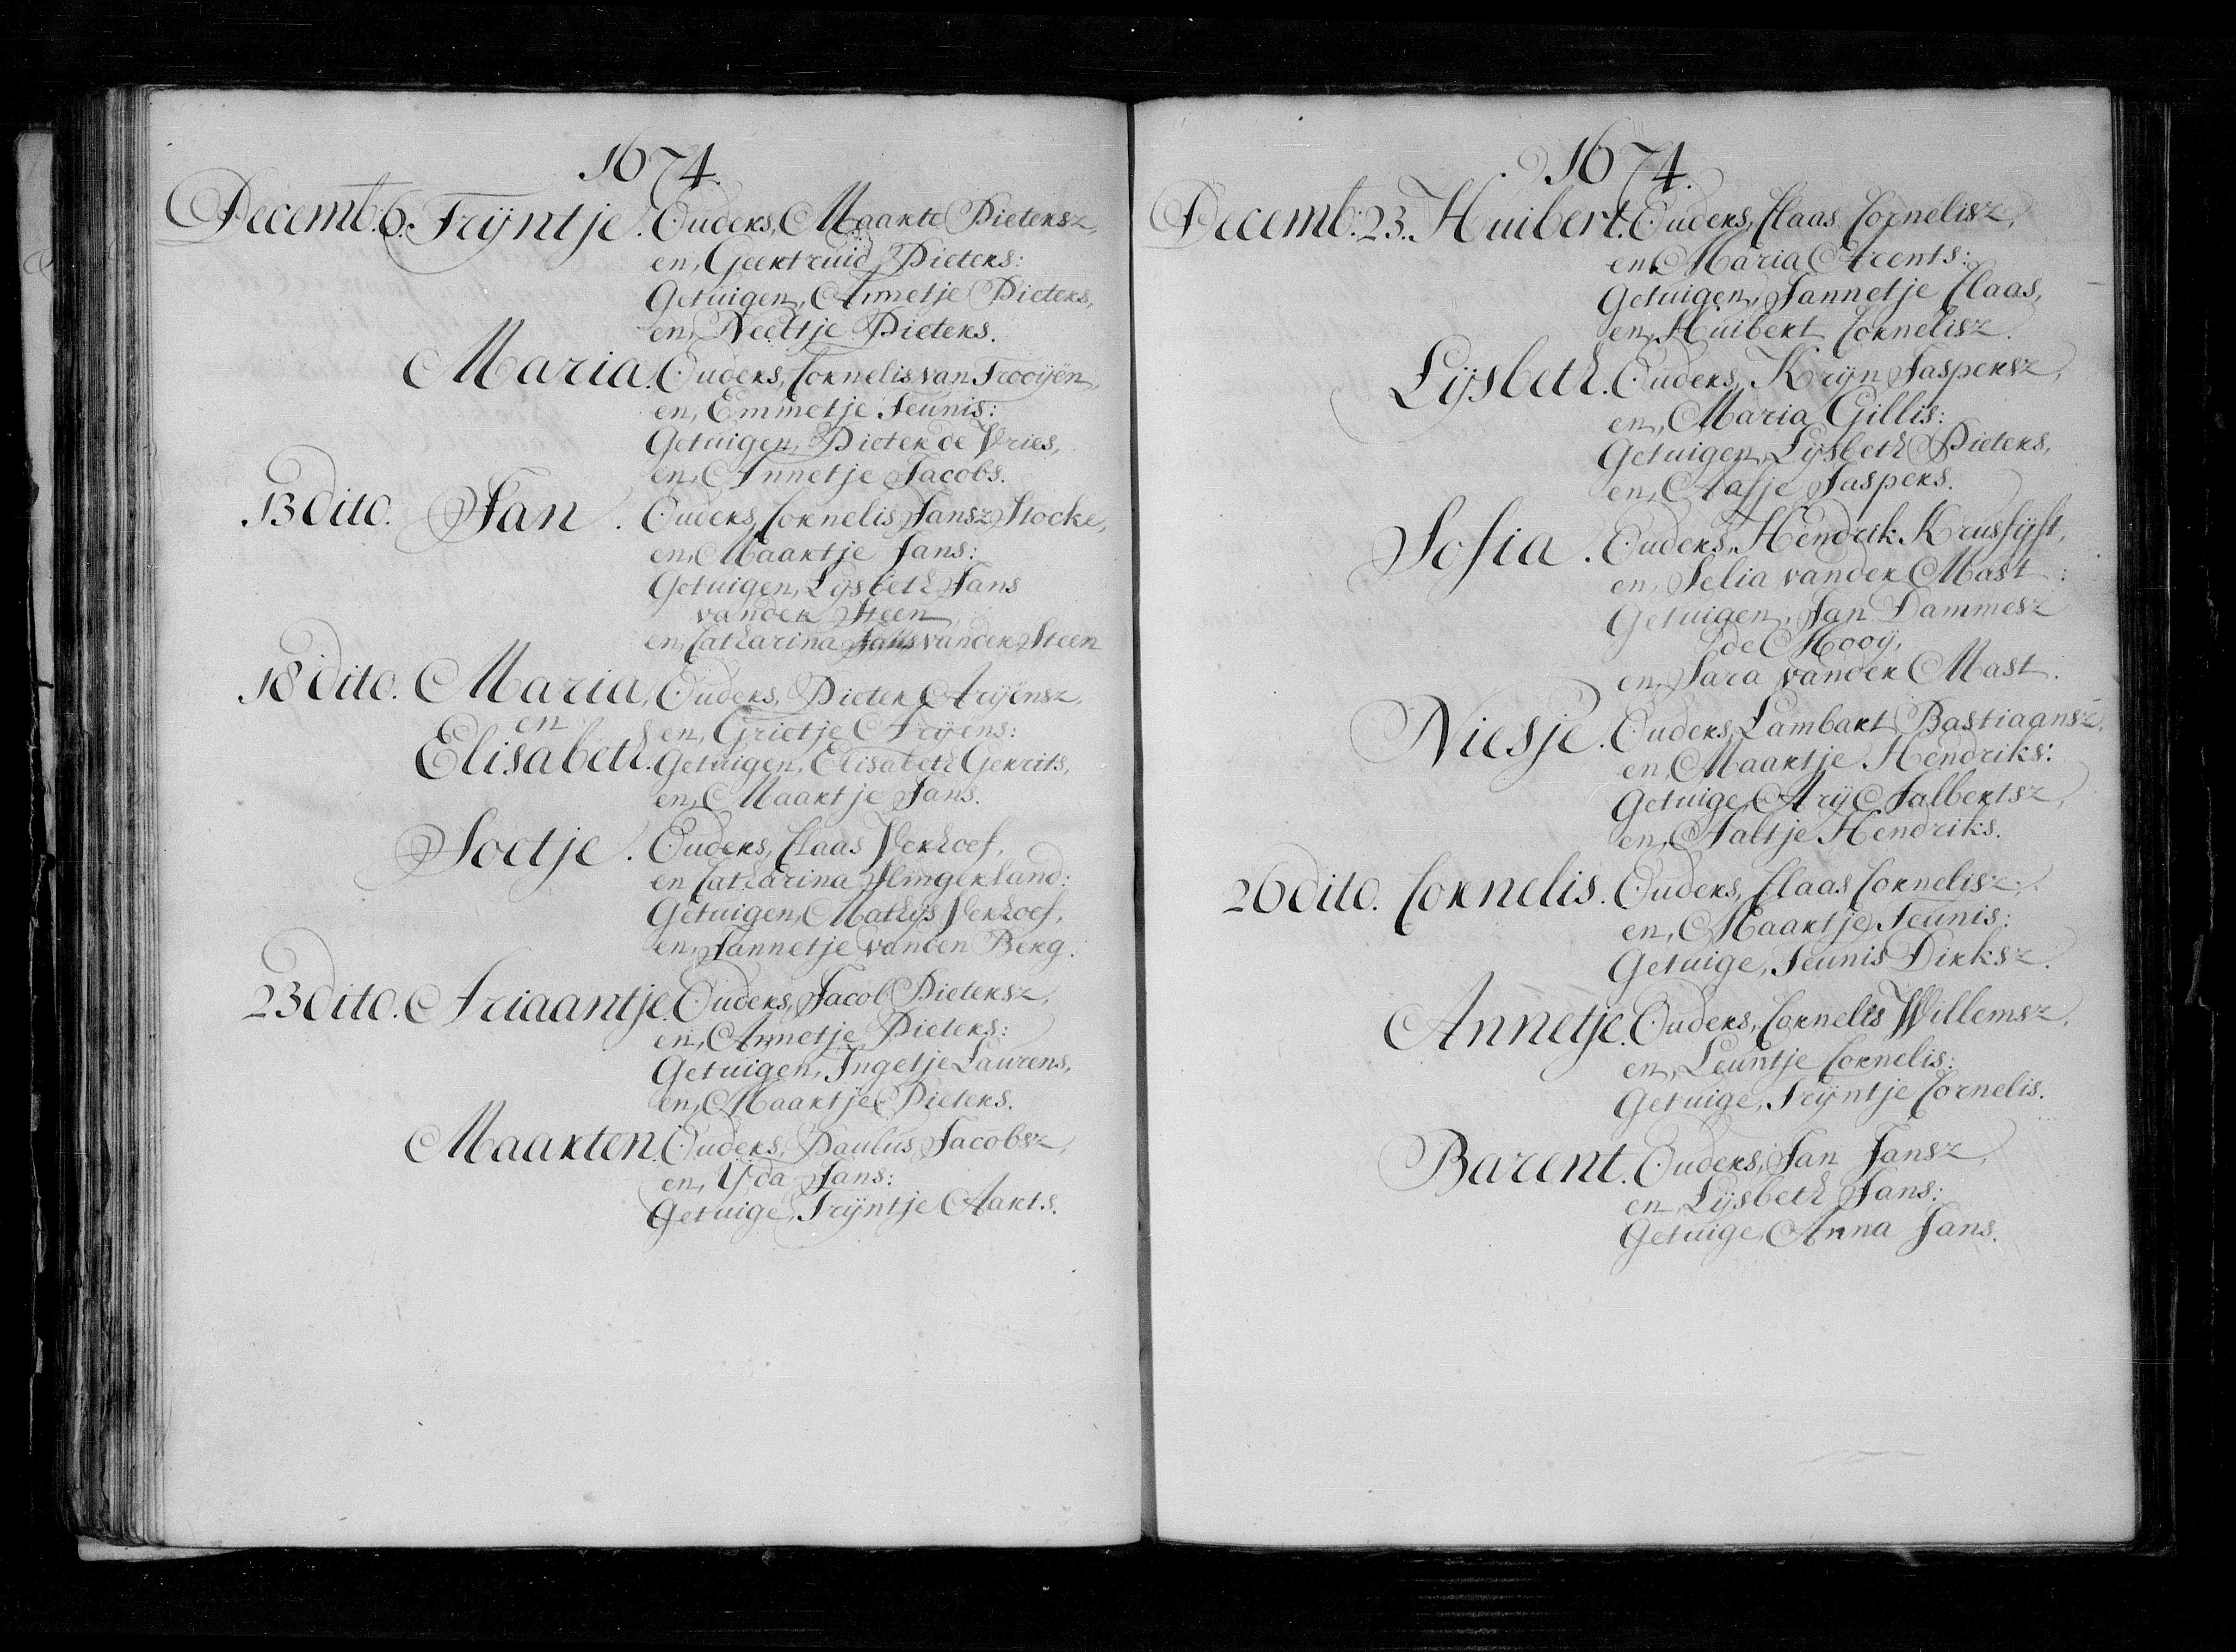 1674.
Decemb: 6. Trÿntje. Ouders, Maarte Pietersz,
en, Geertruid Pieters:
Getuigen, Annetje Pieters,
en, Neeltje Pieters.
Maria. Ouders, Cornelis van Trooÿen,
en, Emmetje Teunis:
Getuigen, Pieter de Vries,
en, Annetje Jacobs.
13 dito. Jan. Ouders, Cornelis Jansz Stocke,
en, Maartje Jans:
Getuigen, Lÿsbeth Jans
vander Steen,
en, Catharina Jans vander Steen
18 dito. Maria, Ouders, Pieter Arÿensz,
en en, Grietje Arÿens:
Elisabeth. Getuigen, Elisabeth Gerrits,
en, Maartje Jans.
Soetje. Ouders, Claas Verhoef,
en Catharina Slingerland:
Getuigen, Mathÿs Verhoef,
en, Jannetje vanden Berg.
23 dito. Ariaantje. Ouders, Jacob Pietersz,
en, Annetje Pieters:
Getuigen, Ingetje Laurens,
en, Maartje Pieters.
Maarten. Ouders, Paulus Jacobsz,
en, Ÿda Jans:
Getuige, Trÿntje Aarts.
1674.
Decemb: 23. Huibert. Ouders, Claas Cornelisz,
en, Maria Arents:
Getuigen, Jannetje Claas,
en, Huibert Cornelisz.
Lÿsbeth. Ouders, Krÿn Jaspersz,
en, Maria Gillis:
Getuigen, Lÿsbeth Pieters,
en, Aafje Jaspers.
Sofia. Ouders, Hendrik Krusfÿft,
en, Selia vander Mast:
Getuigen, Jan Dammesz
de Mooÿ,
en, Sara vander Mast.
Niesje. Ouders, Lambart Bastiaansz,
en, Maartje Hendriks:
Getuige, Arÿ Aalbertsz,
en, Aaltje Hendriks.
26 dito. Cornelis. Ouders, Claas Cornelisz.
en, Maartje Teunis:
Getuige, Teunis Dirksz.
Annetje. Ouders, Cornelis Willemsz,
en, Leuntje Cornelis:
Getuige, Trÿntje Cornelis.
Barent. Ouders, Jan Jansz,
en, Lÿsbeth Jans:
Getuige, Anna Jans.